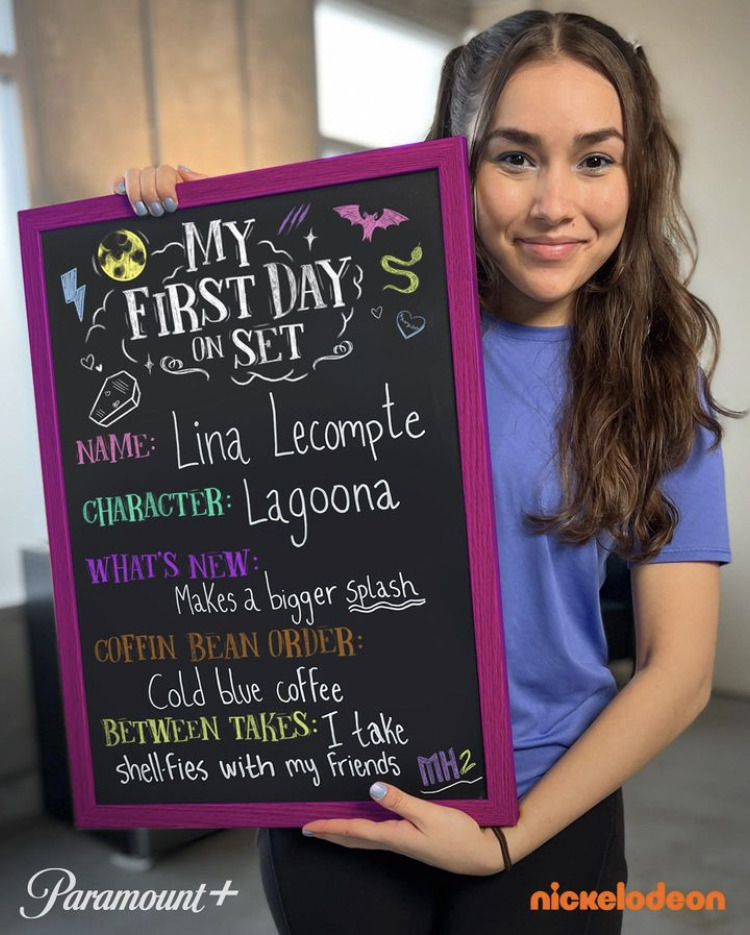 MY
FIRST DAY
ON SET
NAME: Lina Lecompte
CHARACTER: Lagoona
WHAT'S NEW:
Makes a bigger splash
COFFIN BEAN ORDER:
Cold blue coffee
BETWEEN TAKES: I take
shell-fies with my friends
MH2
Paramount+
nickelodeon